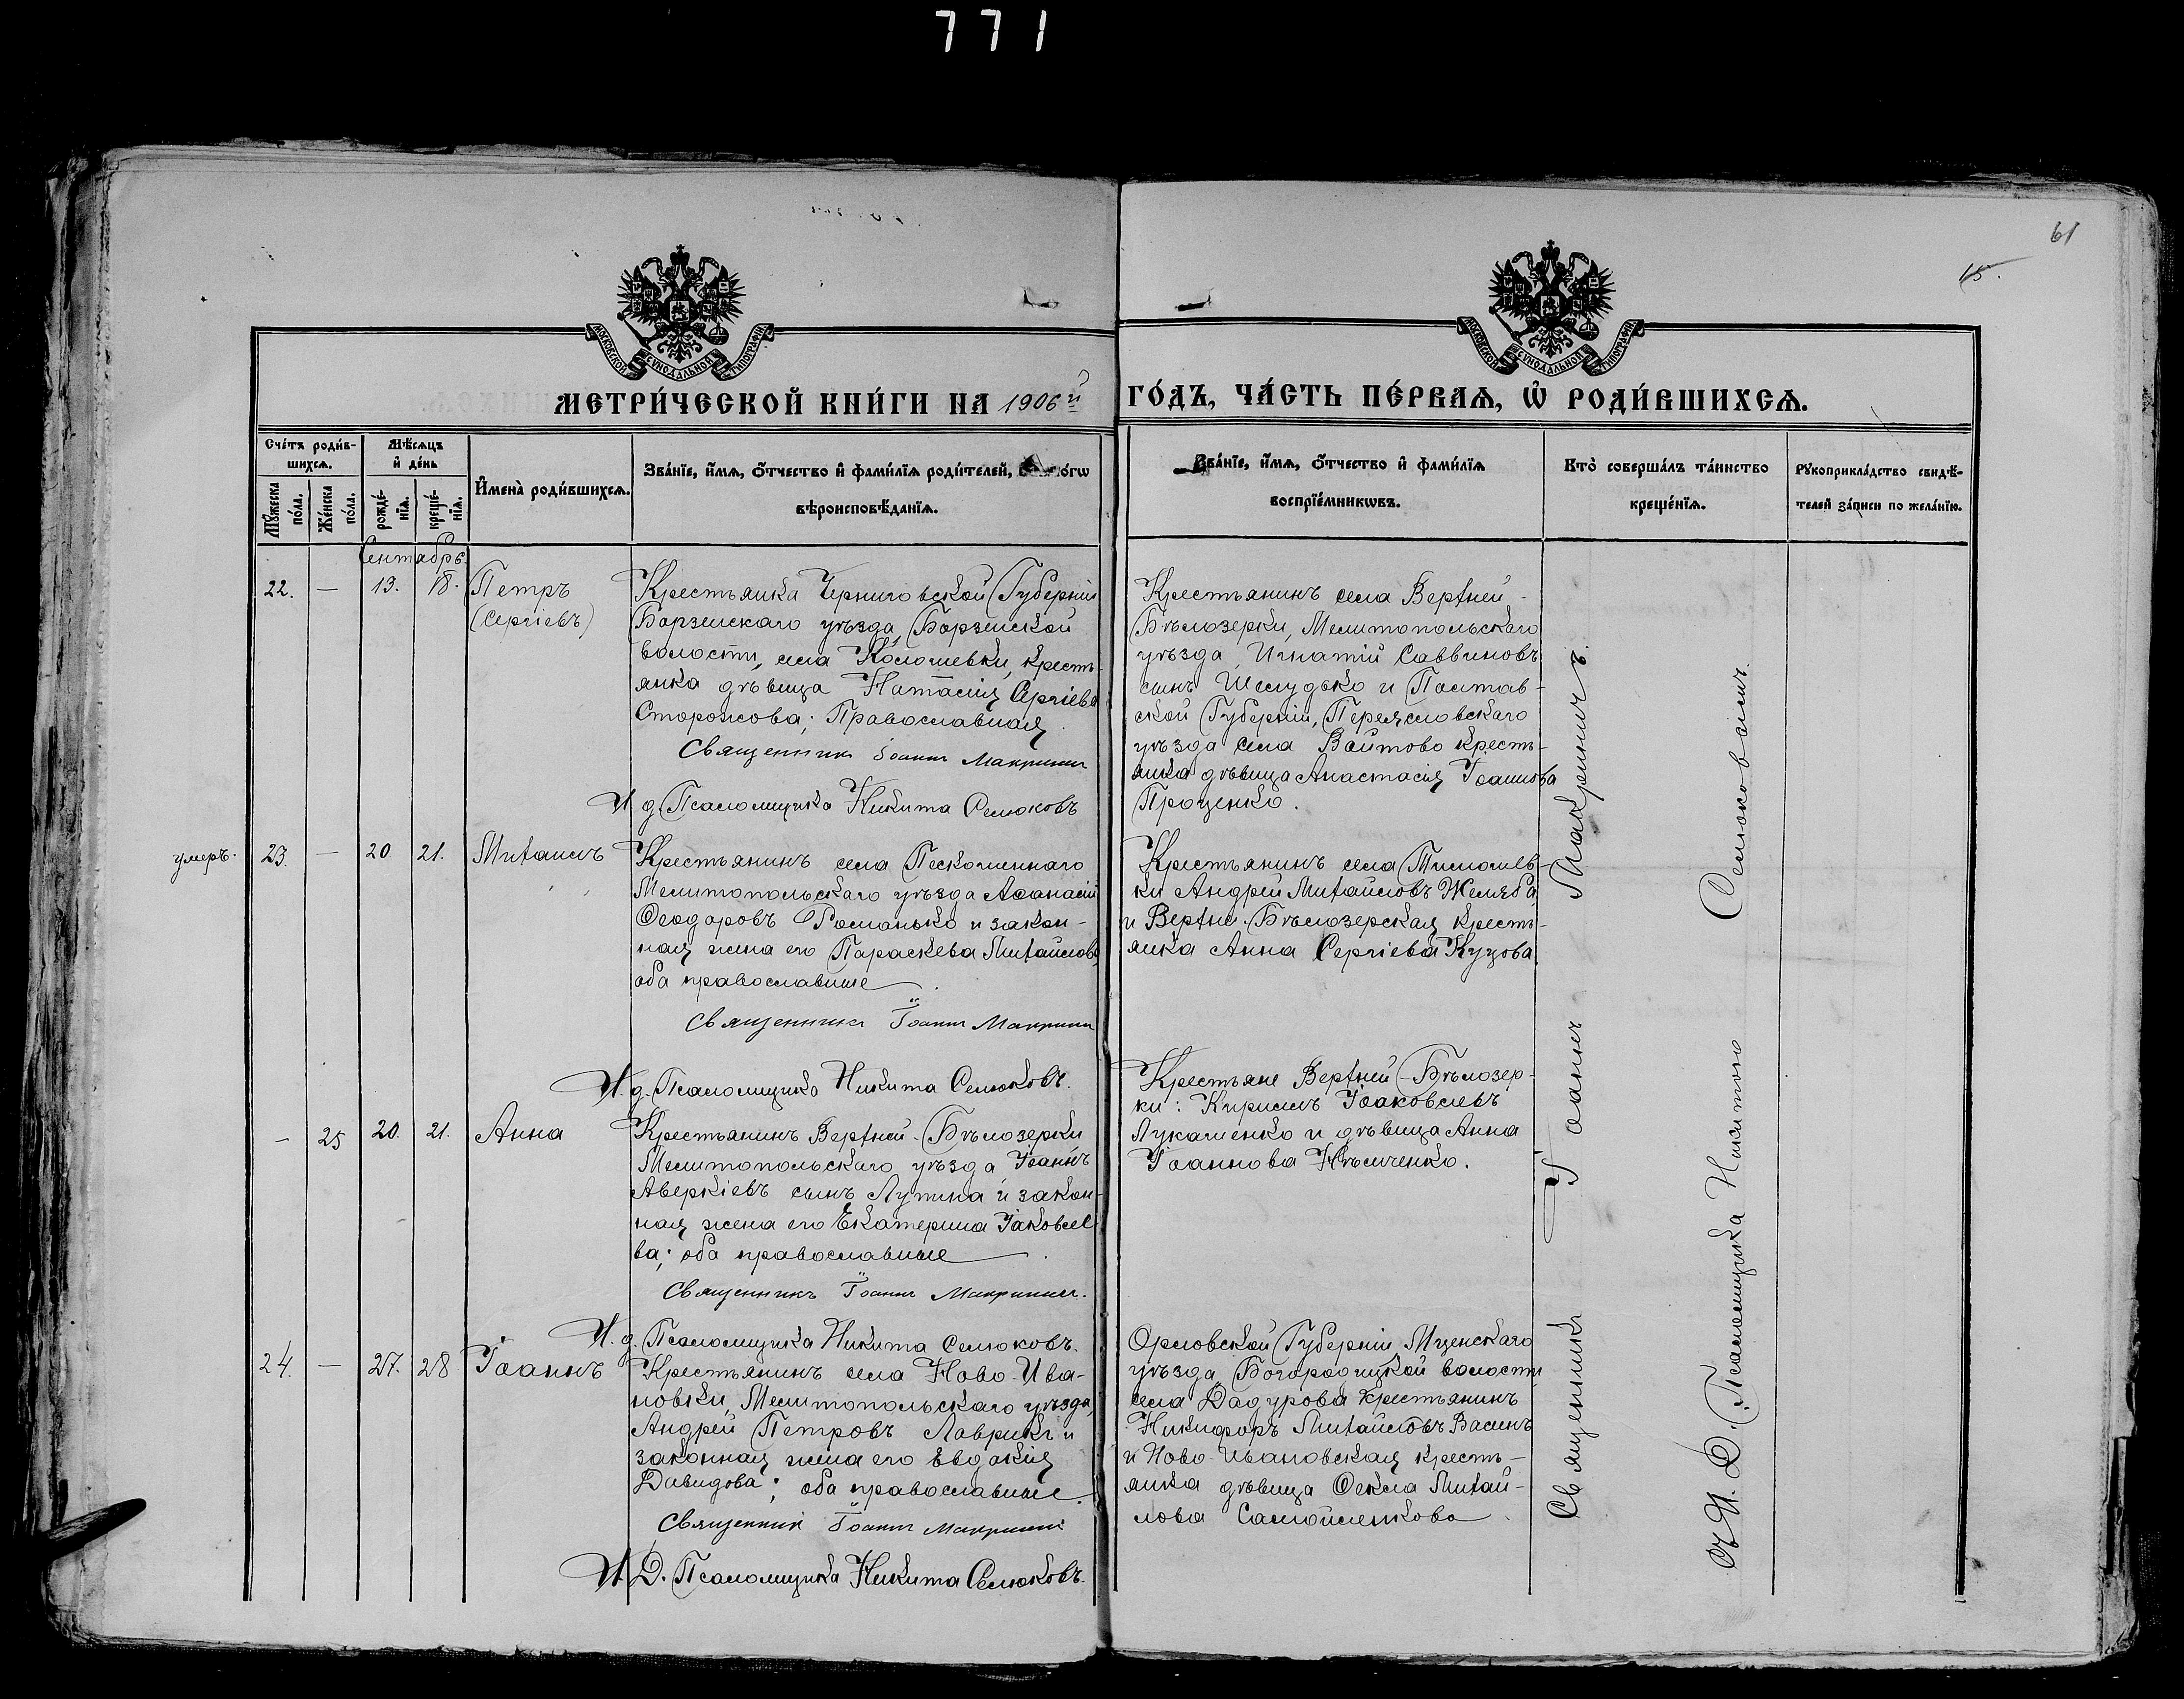 771
61
15.
МОСКОВСКОЙ СѴНОДАЛЬНОЙ ТИПОГРАФІИ
МОСКОВСКОЙ СѴНОДАЛЬНОЙ ТИПОГРАФІИ
МЕТРИ́ЧЕСКОЙ КНИ́ГИ НА 1906й ГО́ДЪ, ЧА́СТЬ ПЕ́РВАѦ, Ѡ РОДИ́ВШИХСѦ.
Сче́тъ роди́в-
шихсѧ.
Мꙋ́жеска по́ла.
Же́нска по́ла.
Мѣ́сѧцъ
и҆ де́нь
рожде́-
нїѧ.
креще́-
нїѧ.
И҆мена̀ роди́вшихсѧ.
Зва́нїе, и҆́мѧ, ѻ҆́тчество и҆ фами́лїѧ роди́телей,
вѣроисповѣ́данїѧ.
Зва́нїе, и҆́мѧ, ѻ҆́тчество и҆ фами́лїѧ
воспрїе́мникѡвъ.
Кто̀ соверша́лъ та́инство
креще́нїѧ.
Рꙋкоприкла́дство свидѣ́-
телей за́писи по жела́нїю.
Сентябрь.
22. — 13. 18. Петръ
(Сергіевъ)
Крестьянка Черниговской Губерніи
Борзенскаго уѣзда, Борзенской
волости, села Кологшевки, кресть-
янка дѣвица Наталія Сергіева
Сторожова; Православная.
Священникъ Іоаннъ Макринич
И д. Псаломщика Никита Селюковъ
Крестьянинъ села Верхней -
Бѣлозерки, Мелитопольскаго
уѣзда, Игнатій Саввиновъ
сынъ Шелудько и Полтав-
ской Губерніи, Переясловскаго
уѣзда села Войтово кресть-
янка дѣвица Анастасія Іоаннова
Проценко.
умеръ.
23. — 20 21. Михаилъ
Крестьянинъ села Пескошеннаго
Мелитопольскаго уѣзда Аѳанасій
Ѳеодоровъ Романько и закон-
ная жена его Параскева Михайлова
оба православные.
Священникъ Іоаннъ Макринич
И. д. Псаломщика Никита Селюковъ.
Крестьянинъ села Тимошев-
ки Андрей Михайловъ Желяба
и Верхне-Бѣлозерская кресть-
янка Анна Сергіева Куцова.
— 25 20. 21. Анна
Крестьянинъ Верхней-Бѣлозерки
Мелитопольскаго уѣзда Іоаннъ
Аверкіевъ сынъ Лупина и закон-
ная жена его Екатерина Іаковле-
ва; оба православные.
Священникъ Іоаннъ Макринич.
И. д. Псаломщика Никита Селюковъ.
Крестьяне Верхней-Бѣлозер-
ки: Кириллъ Іоаковлевъ
Лукашенко и дѣвица Анна
Іоаннова Нѣмченко.
24. — 27. 28 Іоаннъ
Крестьянинъ села Ново-Ива-
новки, Мелитопольскаго уѣзда,
Андрей Петровъ Лаврикъ и
законная жена его Евдокія
Давидова; оба православные.
Священник Іоаннъ Макринич
И Д. Псаломщика Никита Селюковъ.
Орловской Губерніи Мценскаго
уѣзда Богородицкой волости
села Дадурова крестьянинъ
Никифоръ Михайловъ Васинъ
и Ново-Ивановская кресть-
янка дѣвица Ѳекла Михай-
лова Самойленкова.
Священникъ Іоаннъ Макриничъ.
съ И. Д. Псаломщика Никитою Селюковымъ.